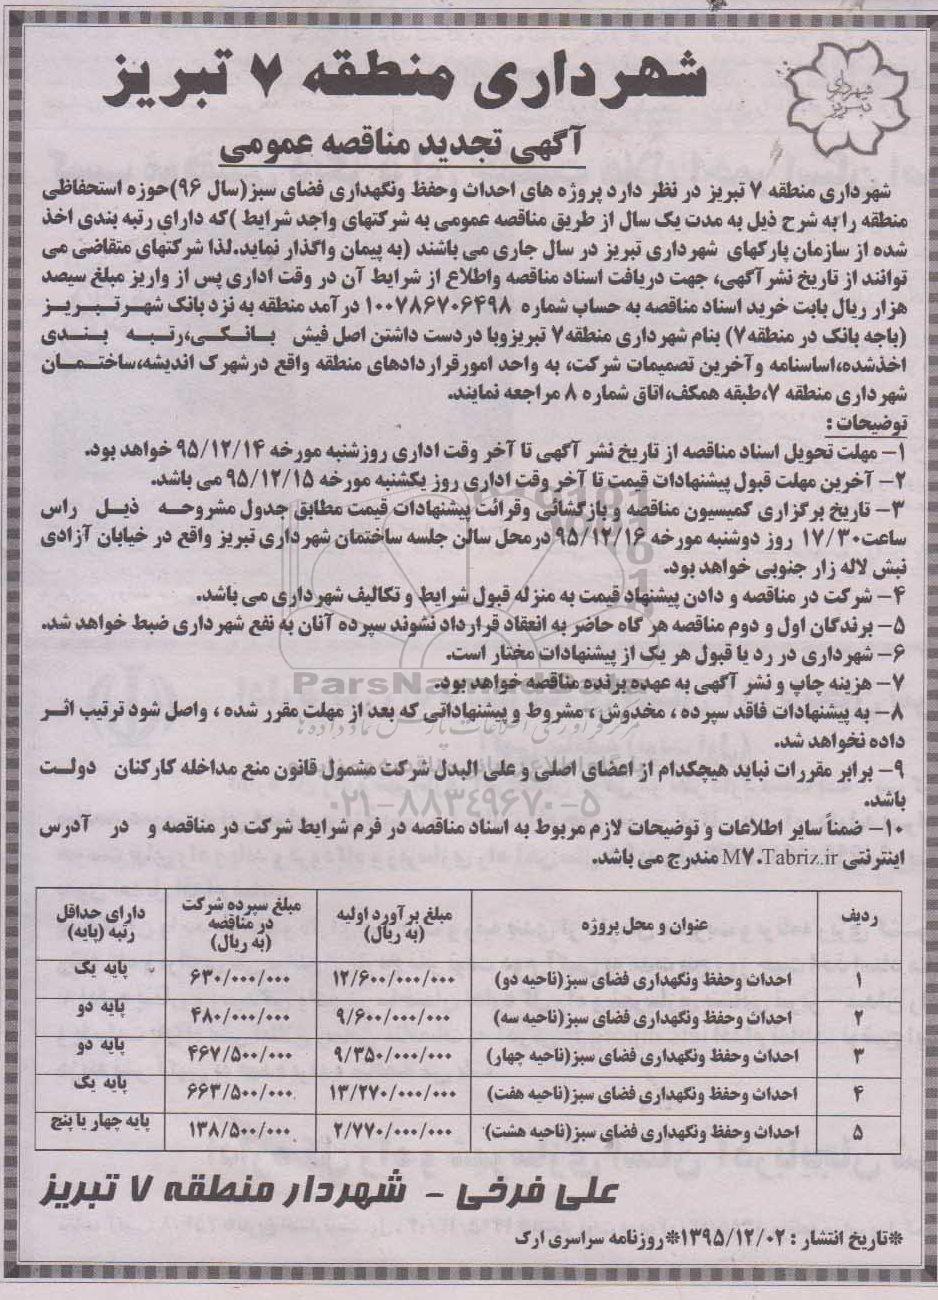 شهرداری تبریز
شهرداری منطقه ۷ تبریز
آگهی تجدید مناقصه عمومی
شهرداری منطقه ۷ تبریز در نظر دارد پروژه های احداث وحفظ ونگهداری فضای سبز(سال ۹۶)حوزه استحفاظی
منطقه را به شرح ذیل به مدت یک سال از طریق مناقصه عمومی به شرکتهای واجد شرایط )که دارای رتبه بندی اخذ
شده از سازمان پارکهای شهرداری تبریز در سال جاری می باشند (به پیمان واگذار نماید.لذا شرکتهای متقاضی می
توانند از تاریخ نشر آگهی، جهت دریافت اسناد مناقصه واطلاع از شرایط آن در وقت اداری پس از واریز مبلغ سیصد
هزار ریال بابت خرید اسناد مناقصه به حساب شماره ۱۰۰۷۸۶۷۰۶۴۹۸ درآمد منطقه به نزد بانک شهرتبریز
(باجه بانک در منطقه۷) بنام شهرداری منطقه۷ تبریزوبا دردست داشتن اصل فیش بانکی،رتبه بندی
اخذشده،اساسنامه وآخرین تصمیمات شرکت، به واحد امورقراردادهای منطقه واقع درشهرک اندیشه،ساختمان
شهرداری منطقه ۷،طبقه همکف،اتاق شماره ۸ مراجعه نمایند.
توضیحات :
۱– مهلت تحویل اسناد مناقصه از تاریخ نشر آگهی تا آخر وقت اداری روزشنبه مورخه ۹۵/۱۲/۱۴ خواهد بود.
۲– آخرین مهلت قبول پیشنهادات قیمت تا آخر وقت اداری روز یکشنبه مورخه ۹۵/۱۲/۱۵ می باشد.
۳– تاریخ برگزاری کمیسیون مناقصه و بازگشائی وقرائت پیشنهادات قیمت مطابق جدول مشروحه ذیل راس
ساعت۱۷/۳۰ روز دوشنبه مورخه ۹۵/۱۲/۱۶ درمحل سالن جلسه ساختمان شهرداری تبریز واقع در خیابان آزادی
نبش لاله زار جنوبی خواهد بود.
۴– شرکت در مناقصه و دادن پیشنهاد قیمت به منزله قبول شرایط و تکالیف شهرداری می باشد.
۵– برندگان اول و دوم مناقصه هر گاه حاضر به انعقاد قرارداد نشوند سپرده آنان به نفع شهرداری ضبط خواهد شد.
۶– شهرداری در رد یا قبول هر یک از پیشنهادات مختار است.
۷– هزینه چاپ و نشر آگهی به عهده برنده مناقصه خواهد بود.
ParsNamaddata
۸– به پیشنهادات فاقد سپرده ، مخدوش ، مشروط و پیشنهاداتی که بعد از مهلت مقرر شده ، واصل شود ترتیب اثر
داده نخواهد شد.
۹– برابر مقررات نباید هیچکدام از اعضای اصلی و علی البدل شرکت مشمول قانون منع مداخله کارکنان دولت
باشد.
۰۲۱-۸۸۳۴۹۶۷۰-۵
۱۰– ضمناً سایر اطلاعات و توضیحات لازم مربوط به اسناد مناقصه در فرم شرایط شرکت در مناقصه و در آدرس
اینترنتی M۷.Tabriz.ir مندرج می باشد.
ردیف | عنوان و محل پروژه | مبلغ برآورد اولیه (به ریال) | مبلغ سپرده شرکت در مناقصه (به ریال) | دارای حداقل رتبه (پایه)
۱ | احداث وحفظ ونگهداری فضای سبز(ناحیه دو) | ۱۲/۶۰۰/۰۰۰/۰۰۰ | ۶۳۰/۰۰۰/۰۰۰ | پایه یک
۲ | احداث وحفظ ونگهداری فضای سبز(ناحیه سه) | ۹/۶۰۰/۰۰۰/۰۰۰ | ۴۸۰/۰۰۰/۰۰۰ | پایه دو
۳ | احداث وحفظ ونگهداری فضای سبز(ناحیه چهار) | ۹/۳۵۰/۰۰۰/۰۰۰ | ۴۶۷/۵۰۰/۰۰۰ | پایه دو
۴ | احداث وحفظ ونگهداری فضای سبز(ناحیه هفت) | ۱۳/۲۷۰/۰۰۰/۰۰۰ | ۶۶۳/۵۰۰/۰۰۰ | پایه یک
۵ | احداث وحفظ ونگهداری فضای سبز(ناحیه هشت) | ۲/۷۷۰/۰۰۰/۰۰۰ | ۱۳۸/۵۰۰/۰۰۰ | پایه چهار یا پنج
علی فرخی – شهردار منطقه ۷ تبریز
*تاریخ انتشار : ۱۳۹۵/۱۲/۰۲*روزنامه سراسری ارک